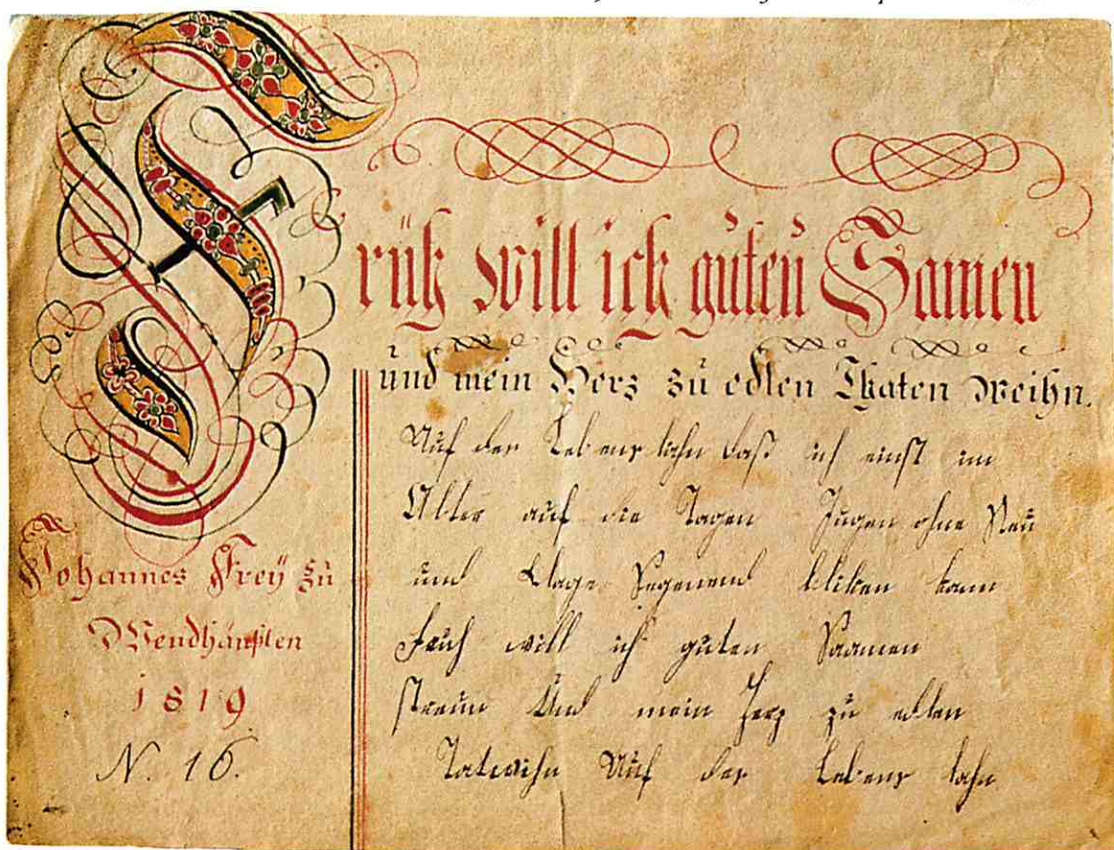 Früh will ich guten Samen
und mein Herz zu edlen Thaten weihn.
Auf der Lebens bahn daß ich einst im
Alter auf die Tagen Jugen ohne Reu
und Klage Segenend bliken kann
Früh will ich guten Saamen
streun Und mein Herz zu edlen
Tatwihn Auf der Lebens bahn
Johannes Freÿ zu
1819
N. 16.